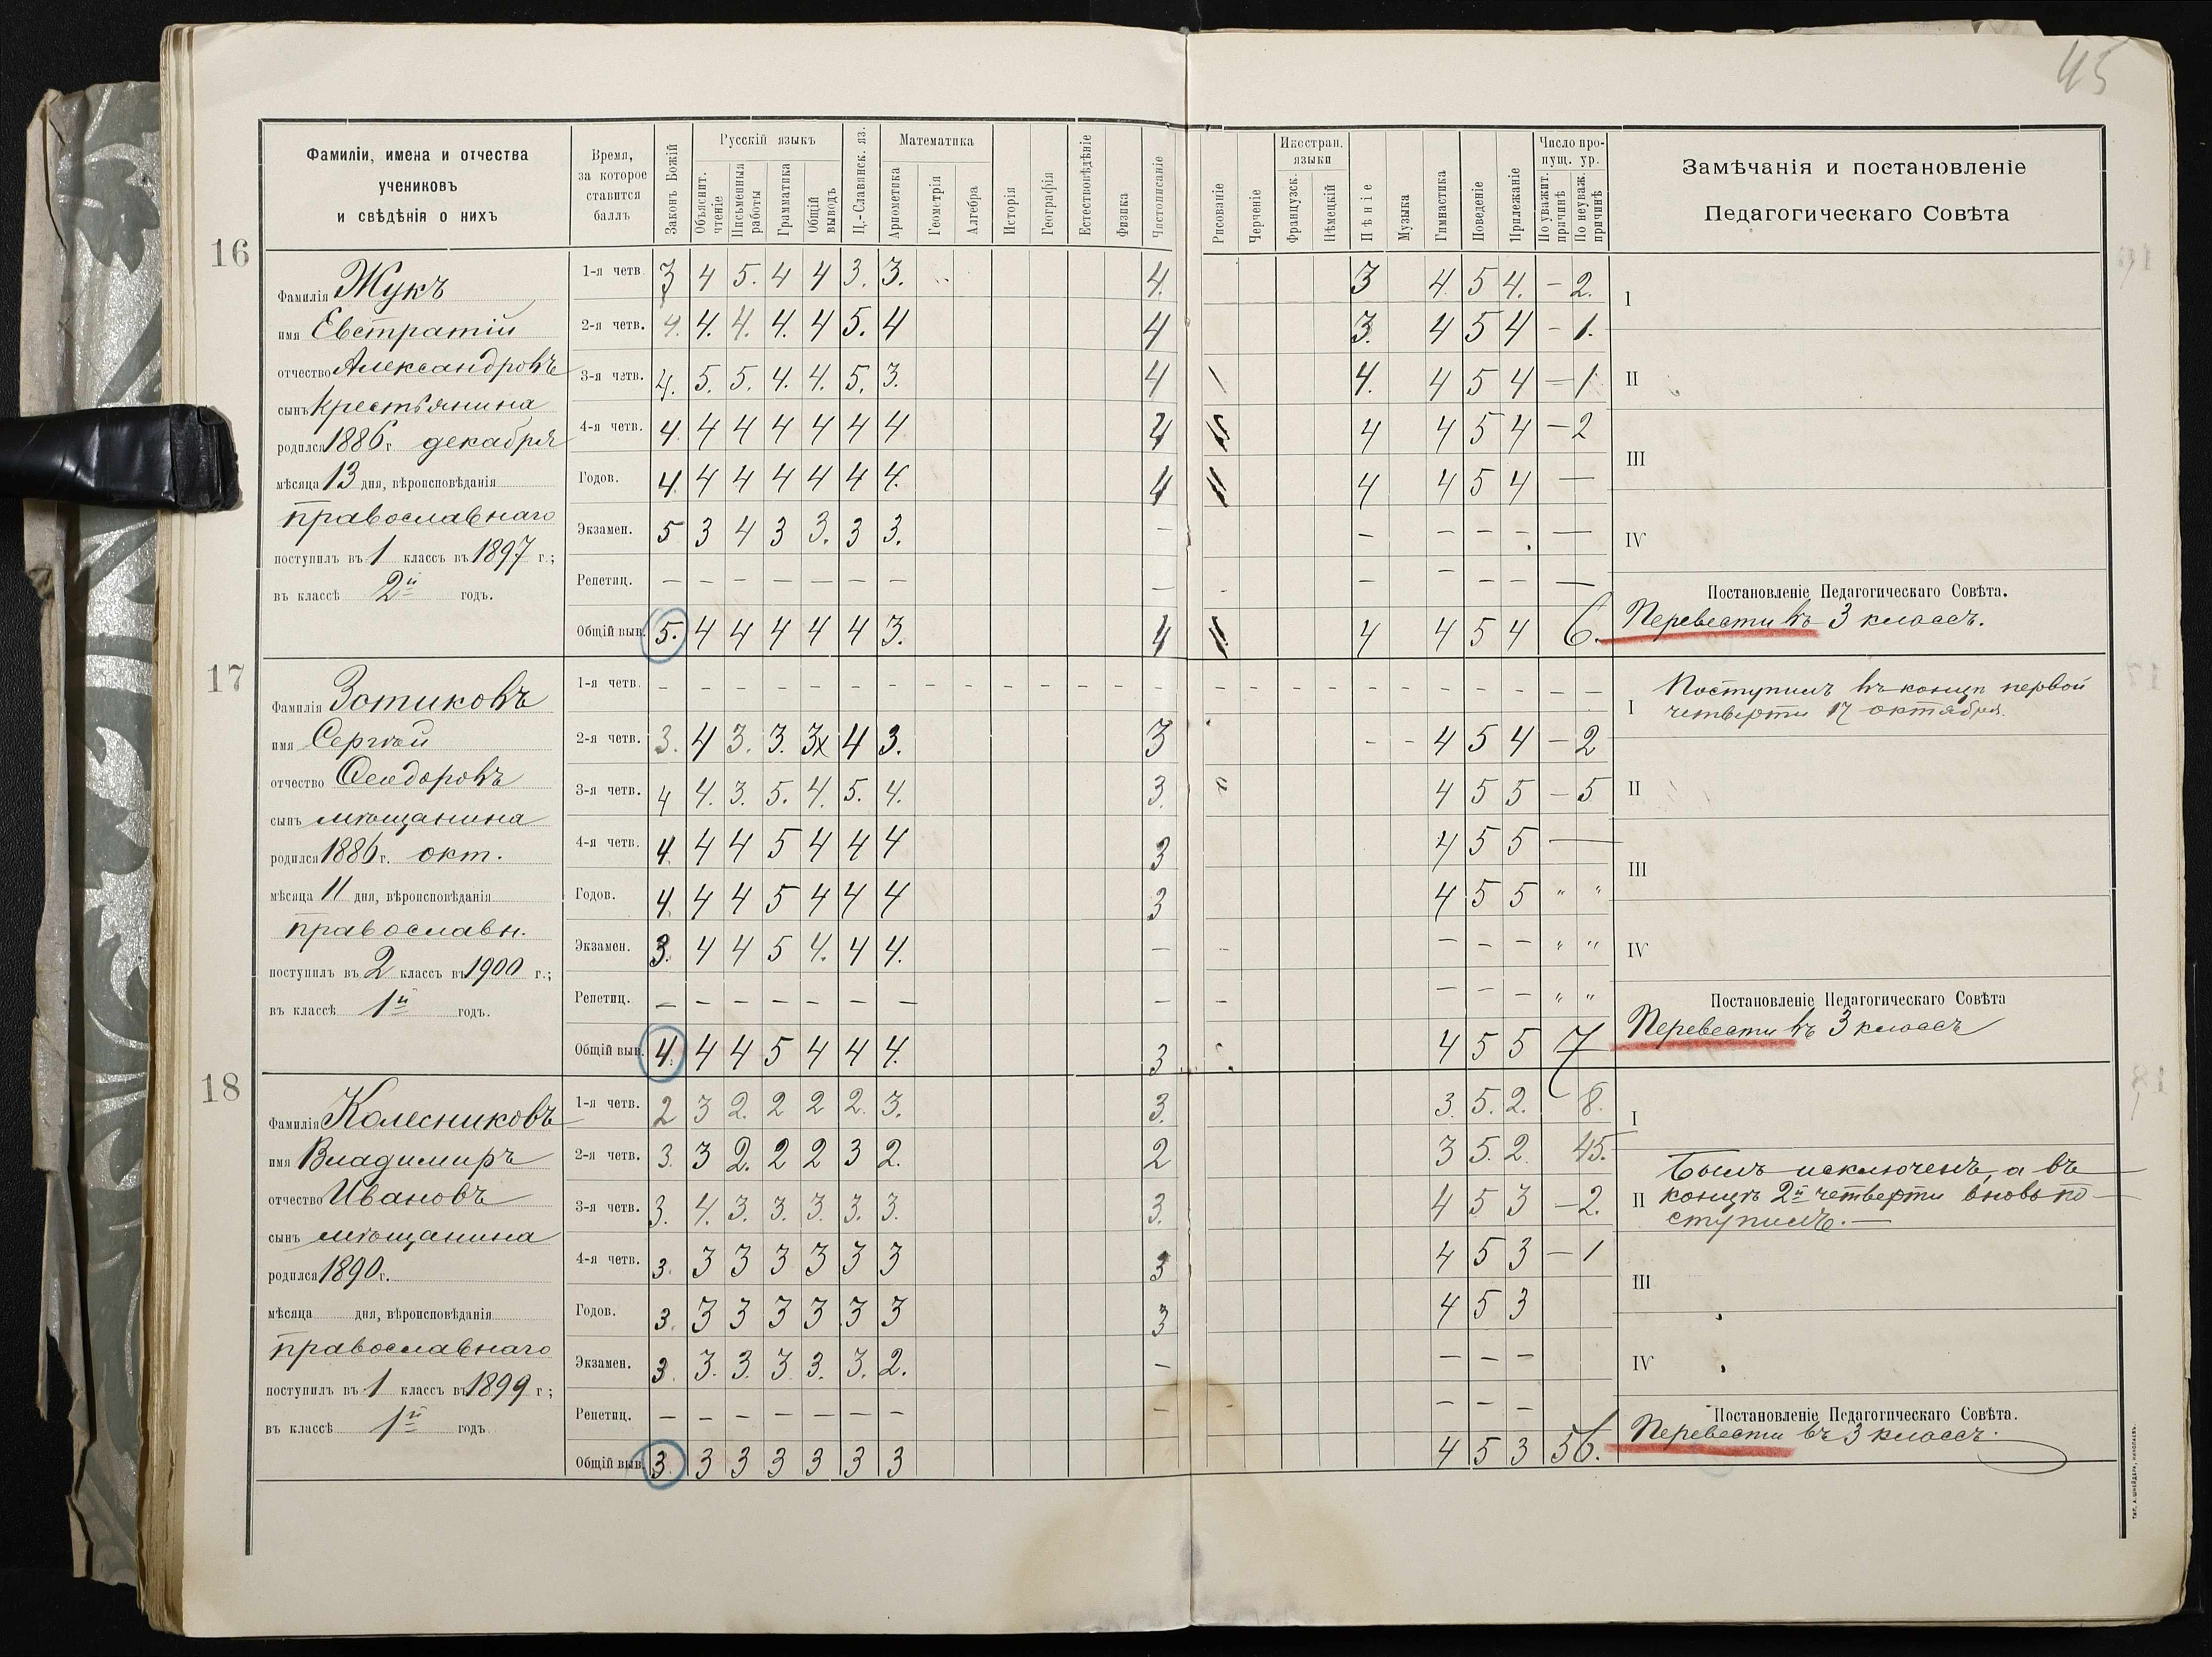 45
Фамиліи, имена и отчества
учениковъ
и свѣдѣнія о нихъ
Время,
за которое
ставится
баллъ
Законъ Божій
Русскій языкъ
Объяснит. чтеніе
Письменныя работы
Грамматика
Общій выводъ
Ц.-Славянск. яз.
Математика
Ариѳметика
Геометрія
Алгебра
Исторія
Географія
Естествовѣдѣніе
Физика
Чистописаніе
Рисованіе
Черченіе
Иностран. языки
Французск.
Нѣмецкій
Пѣніе
Музыка
Гимнастика
Поведеніе
Прилежаніе
Число пропущ. ур.
По уважит. причинѣ
По неуваж. причинѣ
Замѣчанія и постановленіе
Педагогическаго Совѣта
16
Фамилія Жукъ
имя Евстратій
отчество Александровъ
сынъ Крестьянина
родился 1886 г. декабря
мѣсяца 13 дня, вѣроисповѣданія
православнаго
поступилъ въ 1 классъ въ 1897 г.;
въ классѣ 2й годъ.
1-я четв. 3 4 5. 4 4 3. 3. 4. 3 4 5 4. – 2.
2-я четв. 4. 4. 4. 4. 4 5. 4 4 3. 4 5 4 – 1.
3-я четв. 4. 5. 5. 4. 4. 5. 3. 4 4. 4 5 4 – 1
4-я четв. 4 4 4 4 4 4 4 4 4 4 5 4 – 2
Годов. 4. 4 4 4 4 4 4. 4 4 4 5 4 —
Экзамен. 5 3 4 3 3. 3 3. – – – – – —
Репетиц. – – – – – – – – – – – – —
Общій выв. 5. 4 4 4 4 4 3. 4 4 4 5 4 6.
I
II
III
IV
Постановленіе Педагогическаго Совѣта.
Перевести въ 3 классъ.
17
Фамилія Зотиковъ
имя Сергѣй
отчество Ѳеодоровъ
сынъ мѣщанина
родился 1886 г. окт.
мѣсяца 11 дня, вѣроисповѣданія
православн.
поступилъ въ 2 классъ въ 1900 г.;
въ классѣ 1й годъ.
1-я четв. – – – – – – – – – – – – – – – – – – – – – – – – –
2-я четв. 3. 4 3. 3. 3x 4 3. 3 – – 4 5 4 – 2
3-я четв. 4 4. 3. 5. 4. 5. 4. 3. 4 5 5 – 5
4-я четв. 4. 4 4 5 4 4 4 3 4 5 5 —
Годов. 4. 4 4 5 4 4 4 3 4 5 5 " "
Экзамен. 3. 4 4 5 4. 4 4. – – – – – " "
Репетиц. – – – – – – – – – – – – " "
Общій выв. 4. 4 4 5 4 4 4. 3 4 5 5 7
I Поступилъ въ концѣ первой
четверти 17 октября.
II
III
IV
Постановленіе Педагогическаго Совѣта
Перевести въ 3 классъ
18
Фамилія Колесниковъ
имя Владимиръ
отчество Ивановъ
сынъ мѣщанина
родился 1890 г.
мѣсяца дня, вѣроисповѣданія
православнаго
поступилъ въ 1 классъ въ 1899 г;
въ классѣ 1й годъ
1-я четв. 2 3 2. 2 2 2. 3. 3. 3. 5. 2. 8.
2-я четв. 3. 3 2. 2 2 3 2. 2 3 5. 2. 45.
3-я четв. 3. 4. 3. 3. 3. 3. 3. 3. 4 5 3 – 2.
4-я четв. 3. 3 3 3 3 3 3 3 4 5 3 – 1
Годов. 3. 3 3 3 3 3 3 3 4 5 3
Экзамен. 3. 3. 3. 3 3. 3. 2. – – – –
Репетиц. – – – – – – – – – – – –
Общій выв. 3. 3 3 3 3 3 3 4 5 3 56.
I
Былъ исключенъ, а въ
II концѣ 2й четверти вновь по-
ступилъ. —
III
IV
Постановленіе Педагогическаго Совѣта.
Перевести въ 3 классъ.
ТИП. А. ШНЕЙДЕРА, НИКОЛАЕВЪ.